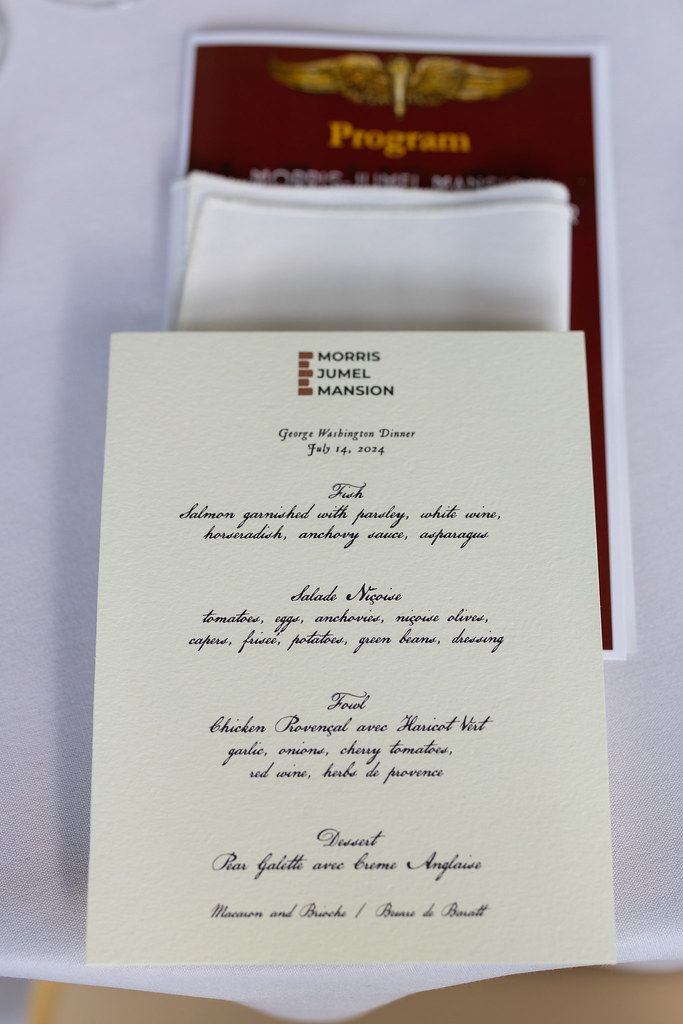 Program
MORRIS-JUMEL MANSION
MORRIS
JUMEL
MANSION
George Washington Dinner
July 14, 2024
Fish
Salmon garnished with parsley, white wine,
horseradish, anchovy sauce, asparagus
Salade Niçoise
tomatoes, eggs, anchovies, niçoise olives,
capers, frisée, potatoes, green beans, dressing
Fowl
Chicken Provençal avec Haricot Vert
garlic, onions, cherry tomatoes,
red wine, herbs de provence
Dessert
Pear Galette avec Creme Anglaise
Macaron and Brioche / Beurre de Baratt